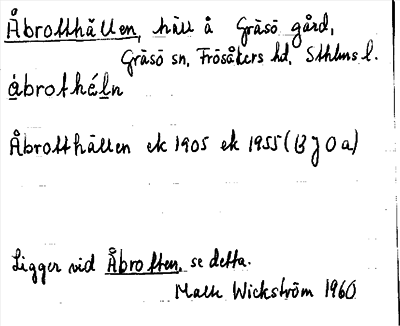 Åbrotthällen, häll å Gräsö gård,
Gräsö sn, Frösåkers hd, Sthlms l.
åbrothéln
Åbrotthällen ek 1905 ek 1955 (B J O a)
Ligger vid Åbrotten, se detta.
Wickström 1960